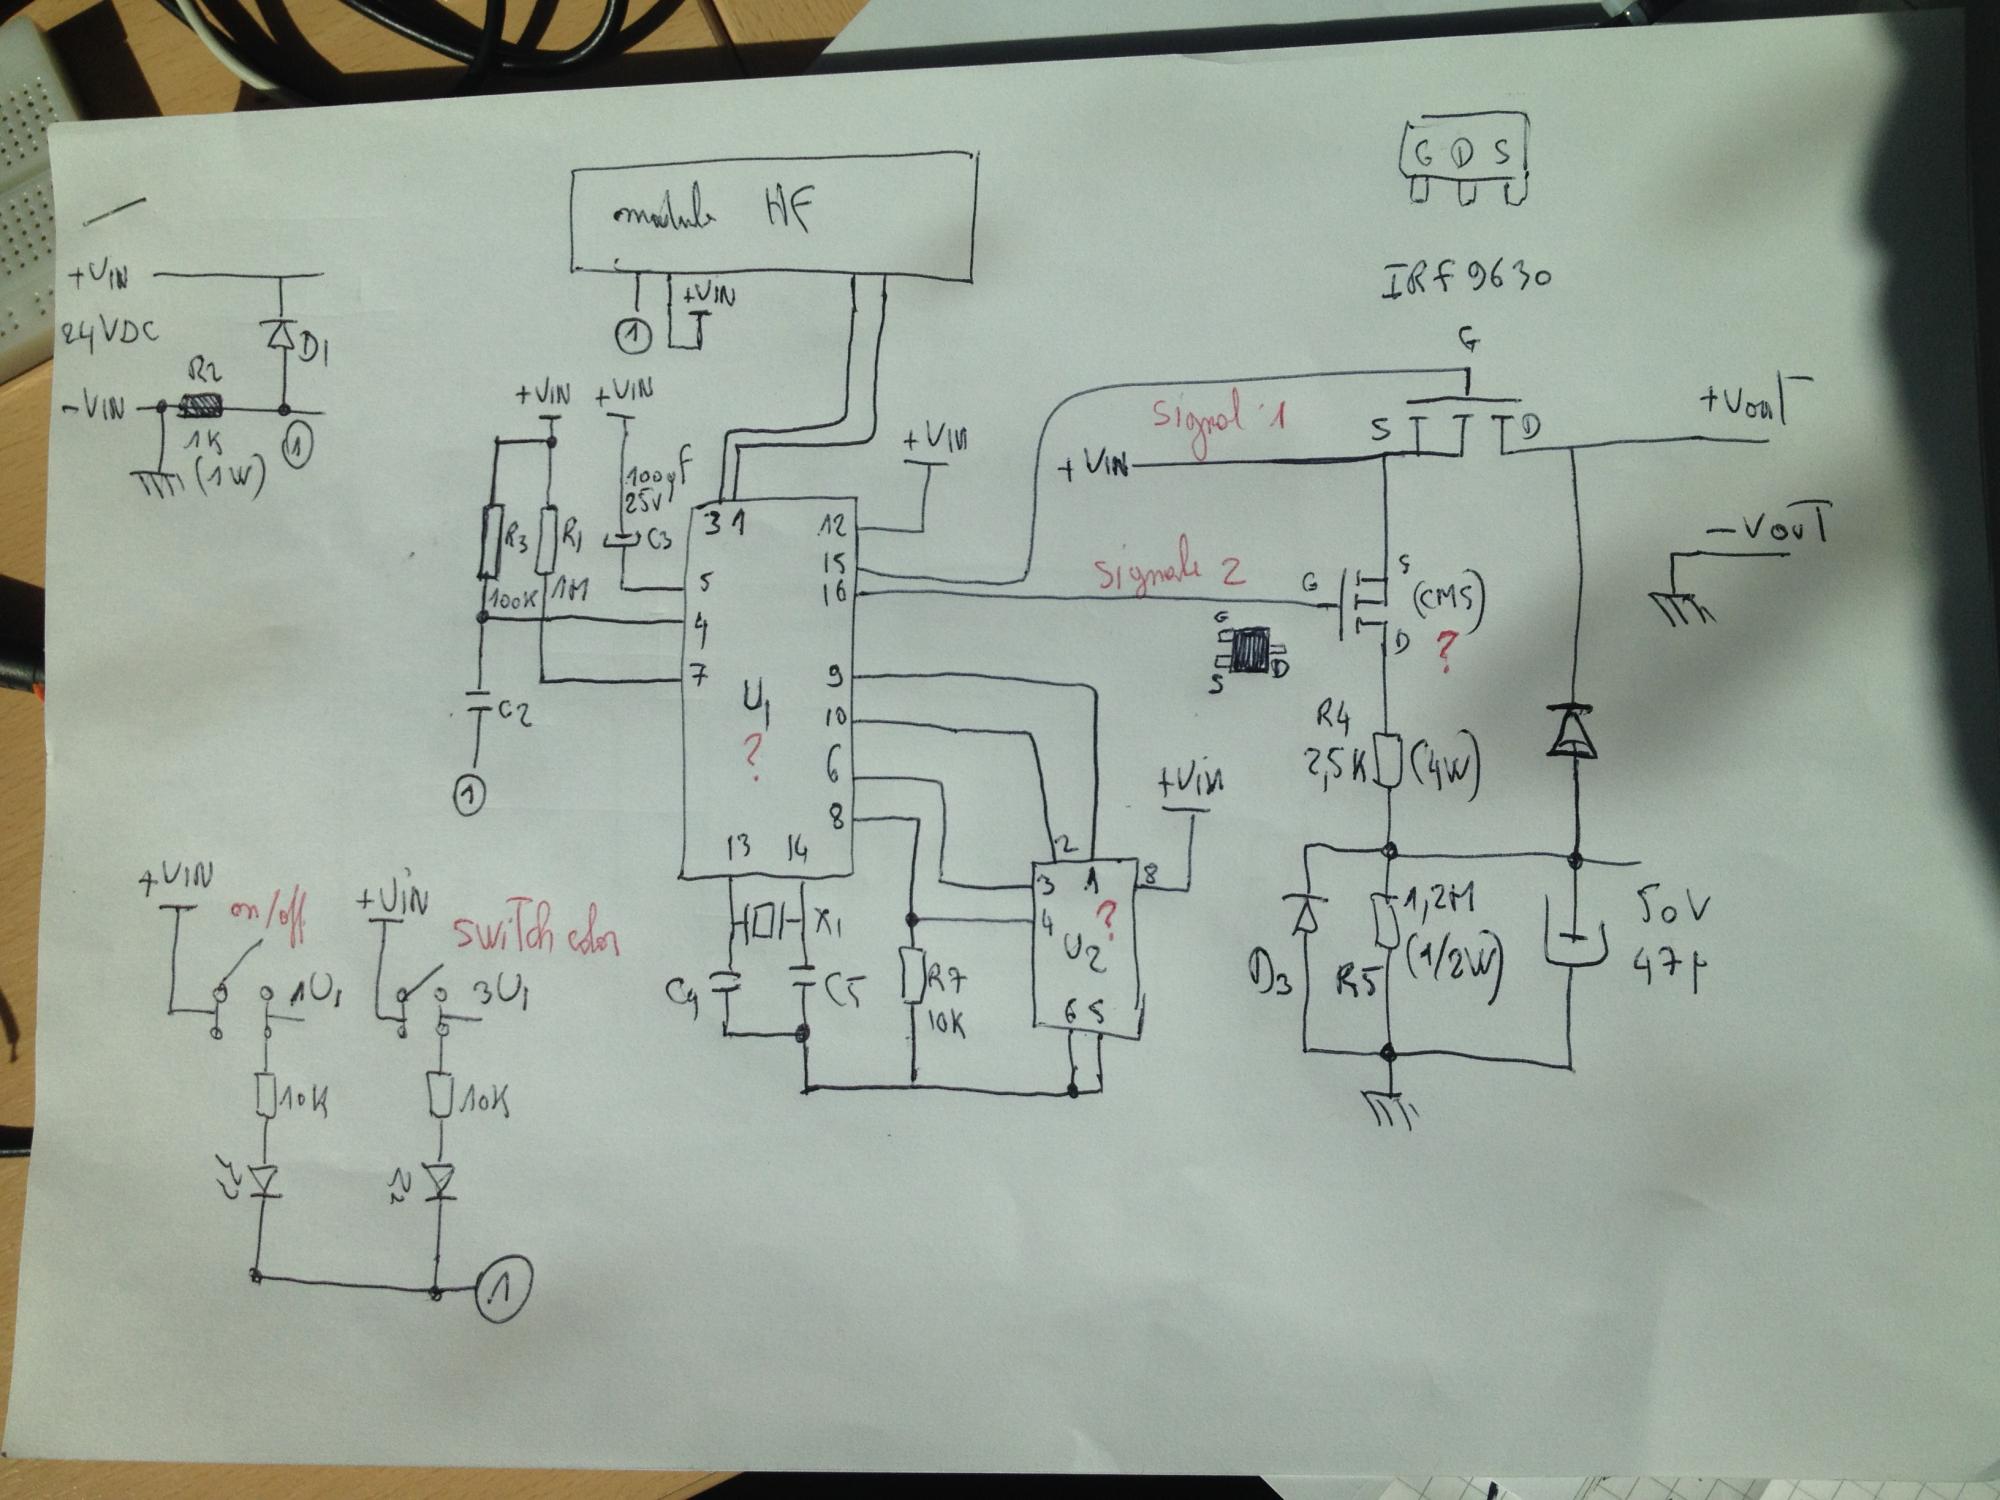 G D S
IRF 9630
module HF
1
+VIN
+VIN
24VDC
-VIN
R2
1K
(1W)
D1
1
+VIN
+VIN
R3
100K
R1
1M
100µF
25V
C3
C2
1
3 1
5
4
7
U1
?
12
15
16
9
10
6
8
13 14
+VIN
Signal 1
+VIN
G
S
D
+Vout
-VOUT
Signale 2
G
S
D
(CMS)
?
G
S
D
R4
2,5K
(4W)
D3
1,2M
(1/2W)
R5
50V
47µ
+Vin
2
3 1 8
4 ?
U2
6 5
X1
C4
C5
R7
10K
+VIN
on/off
1U1
10K
+VIN
switch color
3U1
10K
1